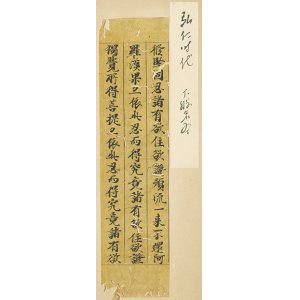 忍諸有欲住欲證預流一來不還阿
羅漢果依此忍而得究竟諸有欲住欲證
獨覺所得菩提依此忍而得究竟諸有欲
弘仁時代